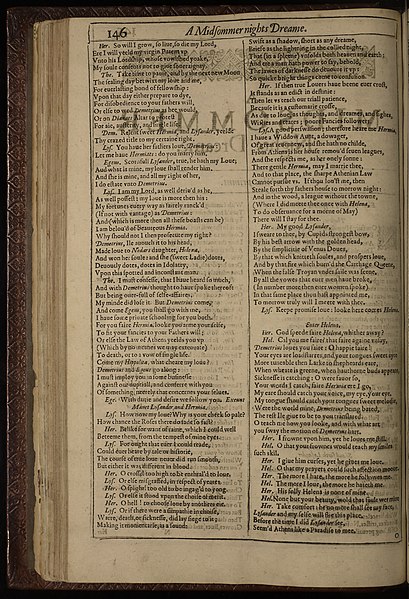 146 A Midsommer nights Dreame.
Her. So will I grow, so liue, so die my Lord,
Ere I will yeeld my virgin Patent vp
Vnto his Lordship, whose vnwished yoake,
My soule consents not to giue soueraignty.
The. Take time to pause, and by the next new Moon
The sealing day betwixt my loue and me,
For euerlasting bond of fellowship:
Vpon that day either prepare to dye,
For disobedience to your fathers will,
Or else to wed Demetrius as hee would,
Or on Dianaes Altar to protest
For aie, austerity, and single life.
Dem. Relent sweet Hermia, and Lysander, yeelde
Thy crazed title to my certaine right.
Lys. You haue her fathers loue, Demetrius:
Let me haue Hermiaes: do you marry him.
Egeus. Scornfull Lysander, true, he hath my Loue;
And what is mine, my loue shall render him.
And she is mine, and all my right of her,
I do estate vnto Demetrius.
Lys. I am my Lord, as well deriu'd as he,
As well possest: my loue is more then his:
My fortunes euery way as fairely ranck'd
(If not with vantage) as Demetrius:
And (which is more then all these boasts can be)
I am belou'd of beauteous Hermia.
Why should not I then prosecute my right?
Demetrius, Ile auouch it to his head,
Made loue to Nedars daughter, Helena,
And won her soule: and she (sweet Ladie) dotes,
Deuoutly dotes, dotes in Idolatry,
Vpon this spotted and inconstant man.
The. I must confesse, that I haue heard so much,
And with Demetrius thought to haue spoke thereof:
But being ouer-full of selfe-affaires,
My minde did lose it. But Demetrius come,
And come Egeus, you shall go with me,
I haue some priuate schooling for you both.
For you faire Hermia, looke you arme your selfe,
To fit your fancies to your Fathers will;
Or else the Law of Athens yeelds you vp
(Which by no meanes we may extenuate)
To death, or to a vow of single life.
Come my Hippolita, what cheare my loue?
Demetrius and Egeus go along:
I must imploy you in some businesse
Against our nuptiall, and conferre with you
Of something, neerely that concernes your selues.
Ege. With dutie and desire we follow you. Exeunt
Manet Lysander and Hermia.
Lys. How now my loue? Why is your cheek so pale?
How chance the Roses there do fade so fast?
Her. Belike for want of raine, which I could well
Beteeme them, from the tempest of mine eyes.
Lys. For ought that euer I could reade,
Could euer heare by tale or historie,
The course of true loue neuer did run smooth,
But either it was different in blood.
Her. O crosse! too high to be enthral'd to loue.
Lys. Or else misgraffed, in respect of yeares.
Her. O spight! too old to be ingag'd to yong.
Lys. Or else it stood vpon the choise of merit.
Her. O hell! to choose loue by anothers eie.
Lys. Or if there were a simpathie in choise,
Warre, death, or sicknesse, did lay siege to it;
Making it momentarie, as a sound:
Swift as a shadow, short as any dreame,
Briefe as the lightning in the collied night,
That (in a spleene) vnfolds both heauen and earth;
And ere a man hath power to say, behold,
The iawes of darkness do deuoure it vp:
So quicke bright things come to confusion.
Her. If then true Louers haue beene euer crost,
It stands as an edict in destinie:
Then let vs teach our triall patience,
Because it is a customarie crosse,
As due to loue, as thoughts, and dreames, and sighes,
Wishes and teares; poore Fancies followers.
Lys. A good perswasion; therefore heare me Hermia,
I haue a Widdow Aunt, a dowager,
Of great reuennew, and she hath no childe,
From Athens is her house remou'd seuen leagues,
And she respects me, as her onely sonne:
There gentle Hermia, may I marrie thee,
And to that place, the sharpe Athenian Law
Cannot pursue vs. If thou lou'st me, then
Steale forth thy fathers house to morrow night:
And in the wood, a league without the towne,
(Where I did meete thee once with Helena,
To do obseruance for a morne of May)
There will I stay for thee.
Her. My good Lysander,
I sweare to thee, by Cupids strongest bow,
By his best arrow with the golden head,
By the simplicitie of Venus Doues,
By that which knitteth soules, and prospers loue,
And by that fire which burn'd the Carthage Queene,
When the false Troyan vnder saile was seene,
By all the vowes that euer men haue broke,
(In number more then euer women spoke)
In that same place thou hast appointed me,
To morrow truly will I meete with thee.
Lys. Keepe promise loue: looke here comes Helena.
Enter Helena.
Her. God speede faire Helena, whither away?
Hel. Cal you me faire? that faire againe vnsay,
Demetrius loues you faire: O happie faire!
Your eyes are loadstarres, and your tongues sweet ayre
More tuneable then Larke to shepheards eare,
When wheate is greene, when hauthorne buds appeare,
Sicknesse is catching: O were fauor so,
Your words I catch, faire Hermia ere I go,
My eare should catch your voice, my eye, your eye,
My tongue should catch your tongues sweet melodie,
Were the world mine, Demetrius being bated,
The rest Ile giue to be to you translated.
O teach me how you looke, and with what art
you sway the motion of Demetrius hart.
Her. I frowne vpon him, yet he loues me still.
Hel. O that your frownes would teach my smiles
such skil.
Her. I giue him curses, yet he giues me loue.
Hel. O that my prayers could such affection mooue.
Her. The more I hate, the more he followes me.
Hel. The more I loue, the more he hateth me.
Her. His folly Helena is none of mine.
Hel. None but your beauty, wold that fault wer mine
Her. Take comfort: he no more shall see my face,
Lysander and my selfe will flie this place.
Before the time I did Lysander see,
Seem'd Athens like a Paradise to mee.
O